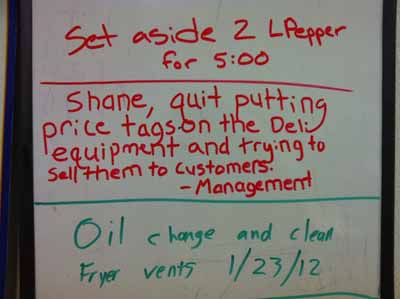 Set aside 2 LPepper
for 5:00
Shane, quit putting
price tags on the Deli
equipment and trying to
sell them to customers.
- Management
Oil change and clean
Fryer vents 1/23/12